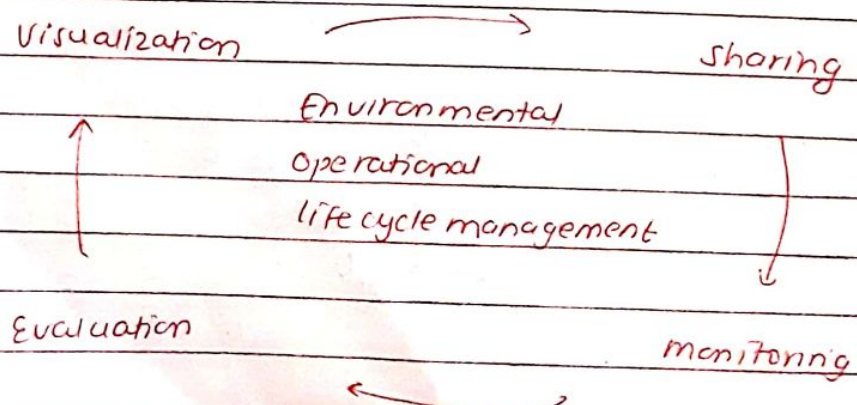 Visualization
Sharing
Environmental
Operational
life cycle management
Evaluation
monitoring